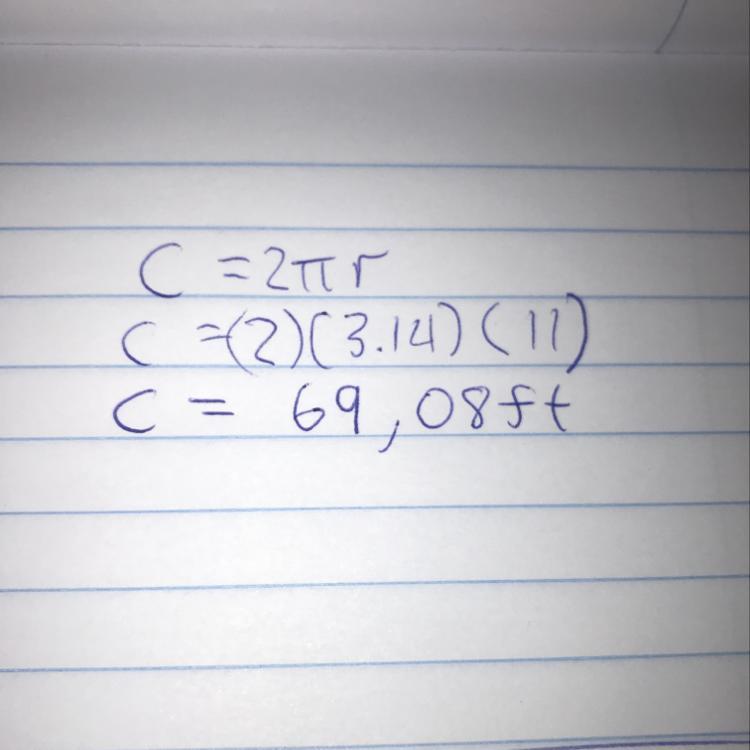 C = 2πr
C = (2)(3.14)(11)
C = 69,08ft